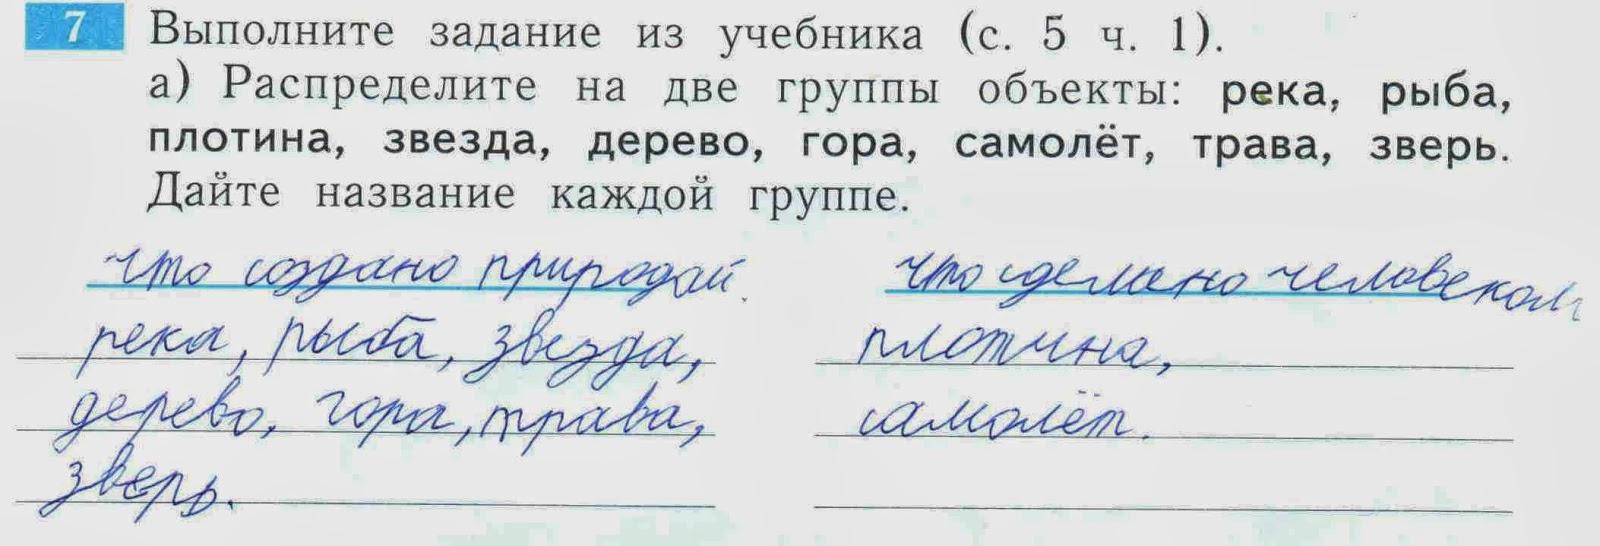 7 Выполните задание из учебника (с. 5 ч. 1).
а) Распределите на две группы объекты: река, рыба,
плотина, звезда, дерево, гора, самолёт, трава, зверь.
Дайте название каждой группе.
что создано природой.
река, рыба, звезда,
дерево, гора, трава,
зверь.
что сделано человеком
плотина,
самолёт.